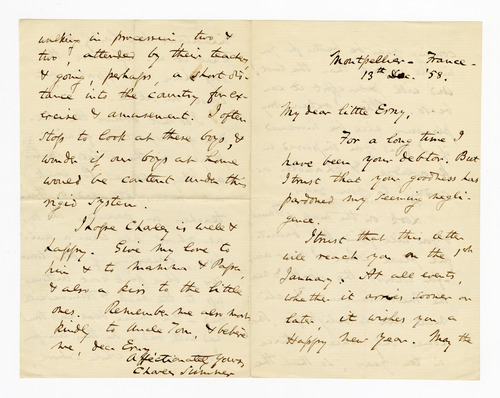 walking in procession two &
two, attended by their teacher,
& going, perhaps, a short dis-
tance into the country for ex-
ercise & amusement. I often
stop to look at these boys, &
wonder if our boys at home
would be content under this
rigid system.
I hope Charley is well &
happy. Give my love to
him & to mamma & Papa,
& also a kiss to the little
ones. Remember me also most
kindly to Uncle Tom, & believe
me, dear Erny,
Affectionately Yours,
Charles Sumner
Montpellier - France -
13th Dec. '58.
My dear little Erny,
For a long time I
have been your debtor. But
I trust that your goodness has
pardoned my seeming negli-
gence.
I trust that this letter
will reach you on the 1st
January. At all events,
whether it arrives sooner or
later, it wishes you a
Happy New Year. May the